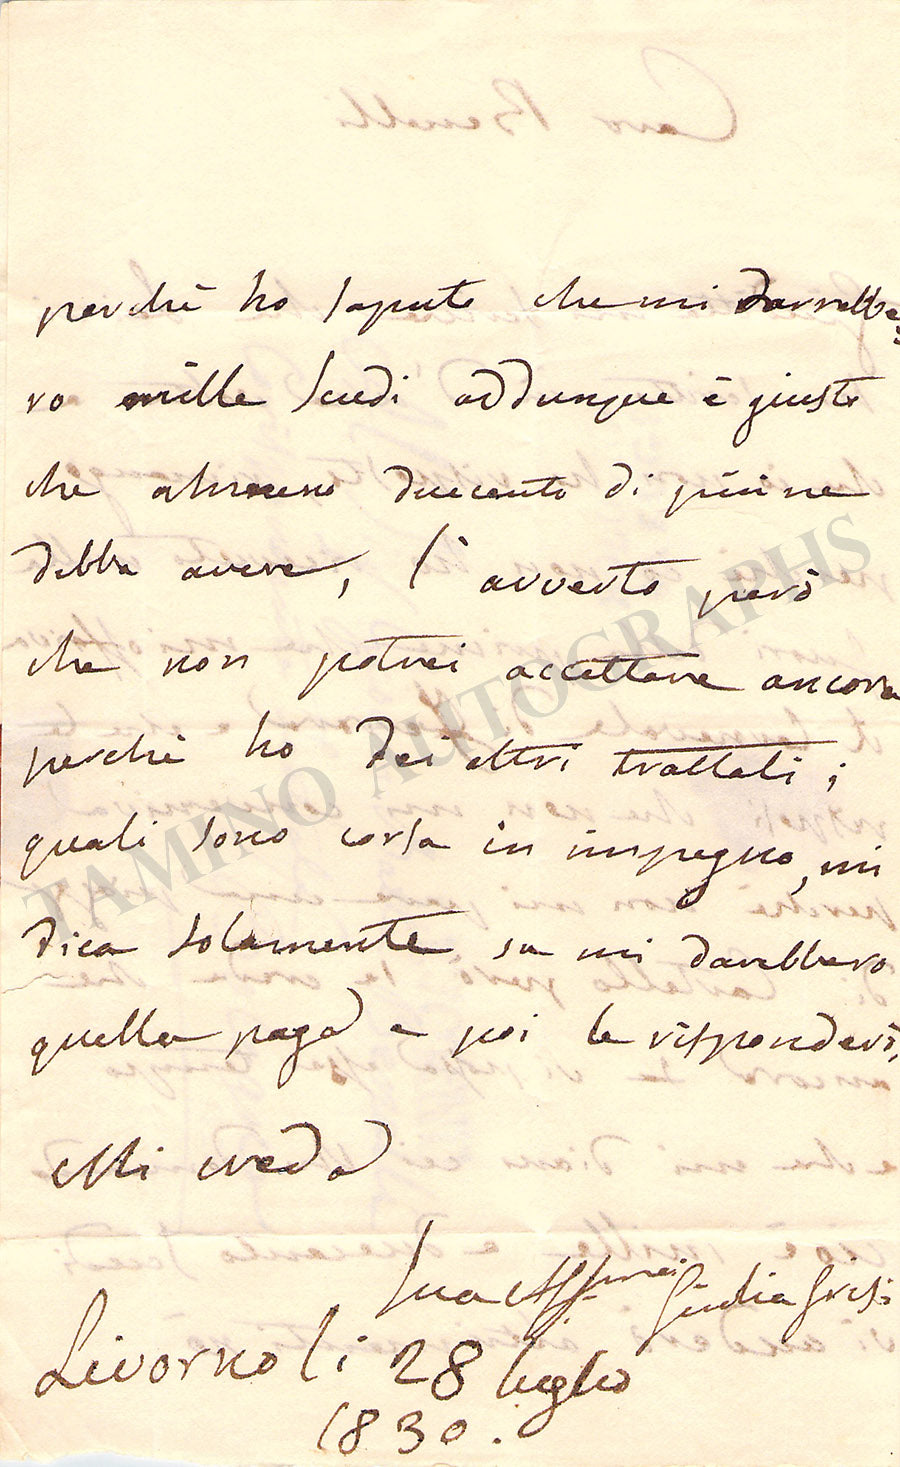 perchè ho saputo che mi darrebbe=
ro mille scudi addunque è giusto
che almeno duecento di più ne
debba avere, l'avverto però
che non potrei accettare ancora
perchè ho dei altri trattati i
quali sono corsa in impegno, mi
dica solamente se mi darebbero
quella paga e poi le risponderò,
Mi creda
Sua Aff.ma Giudia Grisi
Livorno li 28 luglio
1830.
TAMINO AUTOGRAPHS